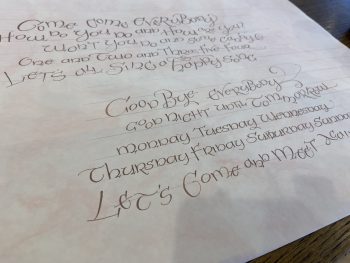 Come Come Everybody
How Do You Do and How Are You
Won't You Do and Some Candy
One and Two and Three Four
Let's All Sing a Happy Song
Good Bye Everybody
Good Night Until Tommorrow
Monday Tuesday Wennesday
Thursday Friday Suturday Sunday
Let's Come and Meet